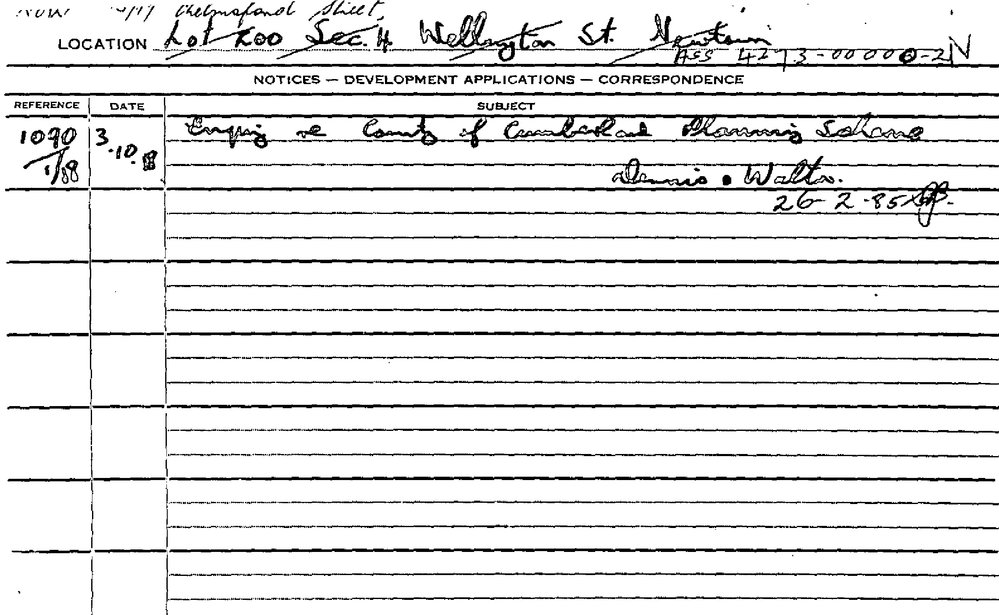 Chelmsford Street,
LOCATION Lot 200 Sec. 4. Wellington St. Newtown
Ass 4273-00000-2 N
NOTICES — DEVELOPMENT APPLICATIONS — CORRESPONDENCE
REFERENCE DATE SUBJECT
1090 3.10. Enquiry re County of Cumberland Planning Scheme
1/88
Dennis & Walton.
26-2-85